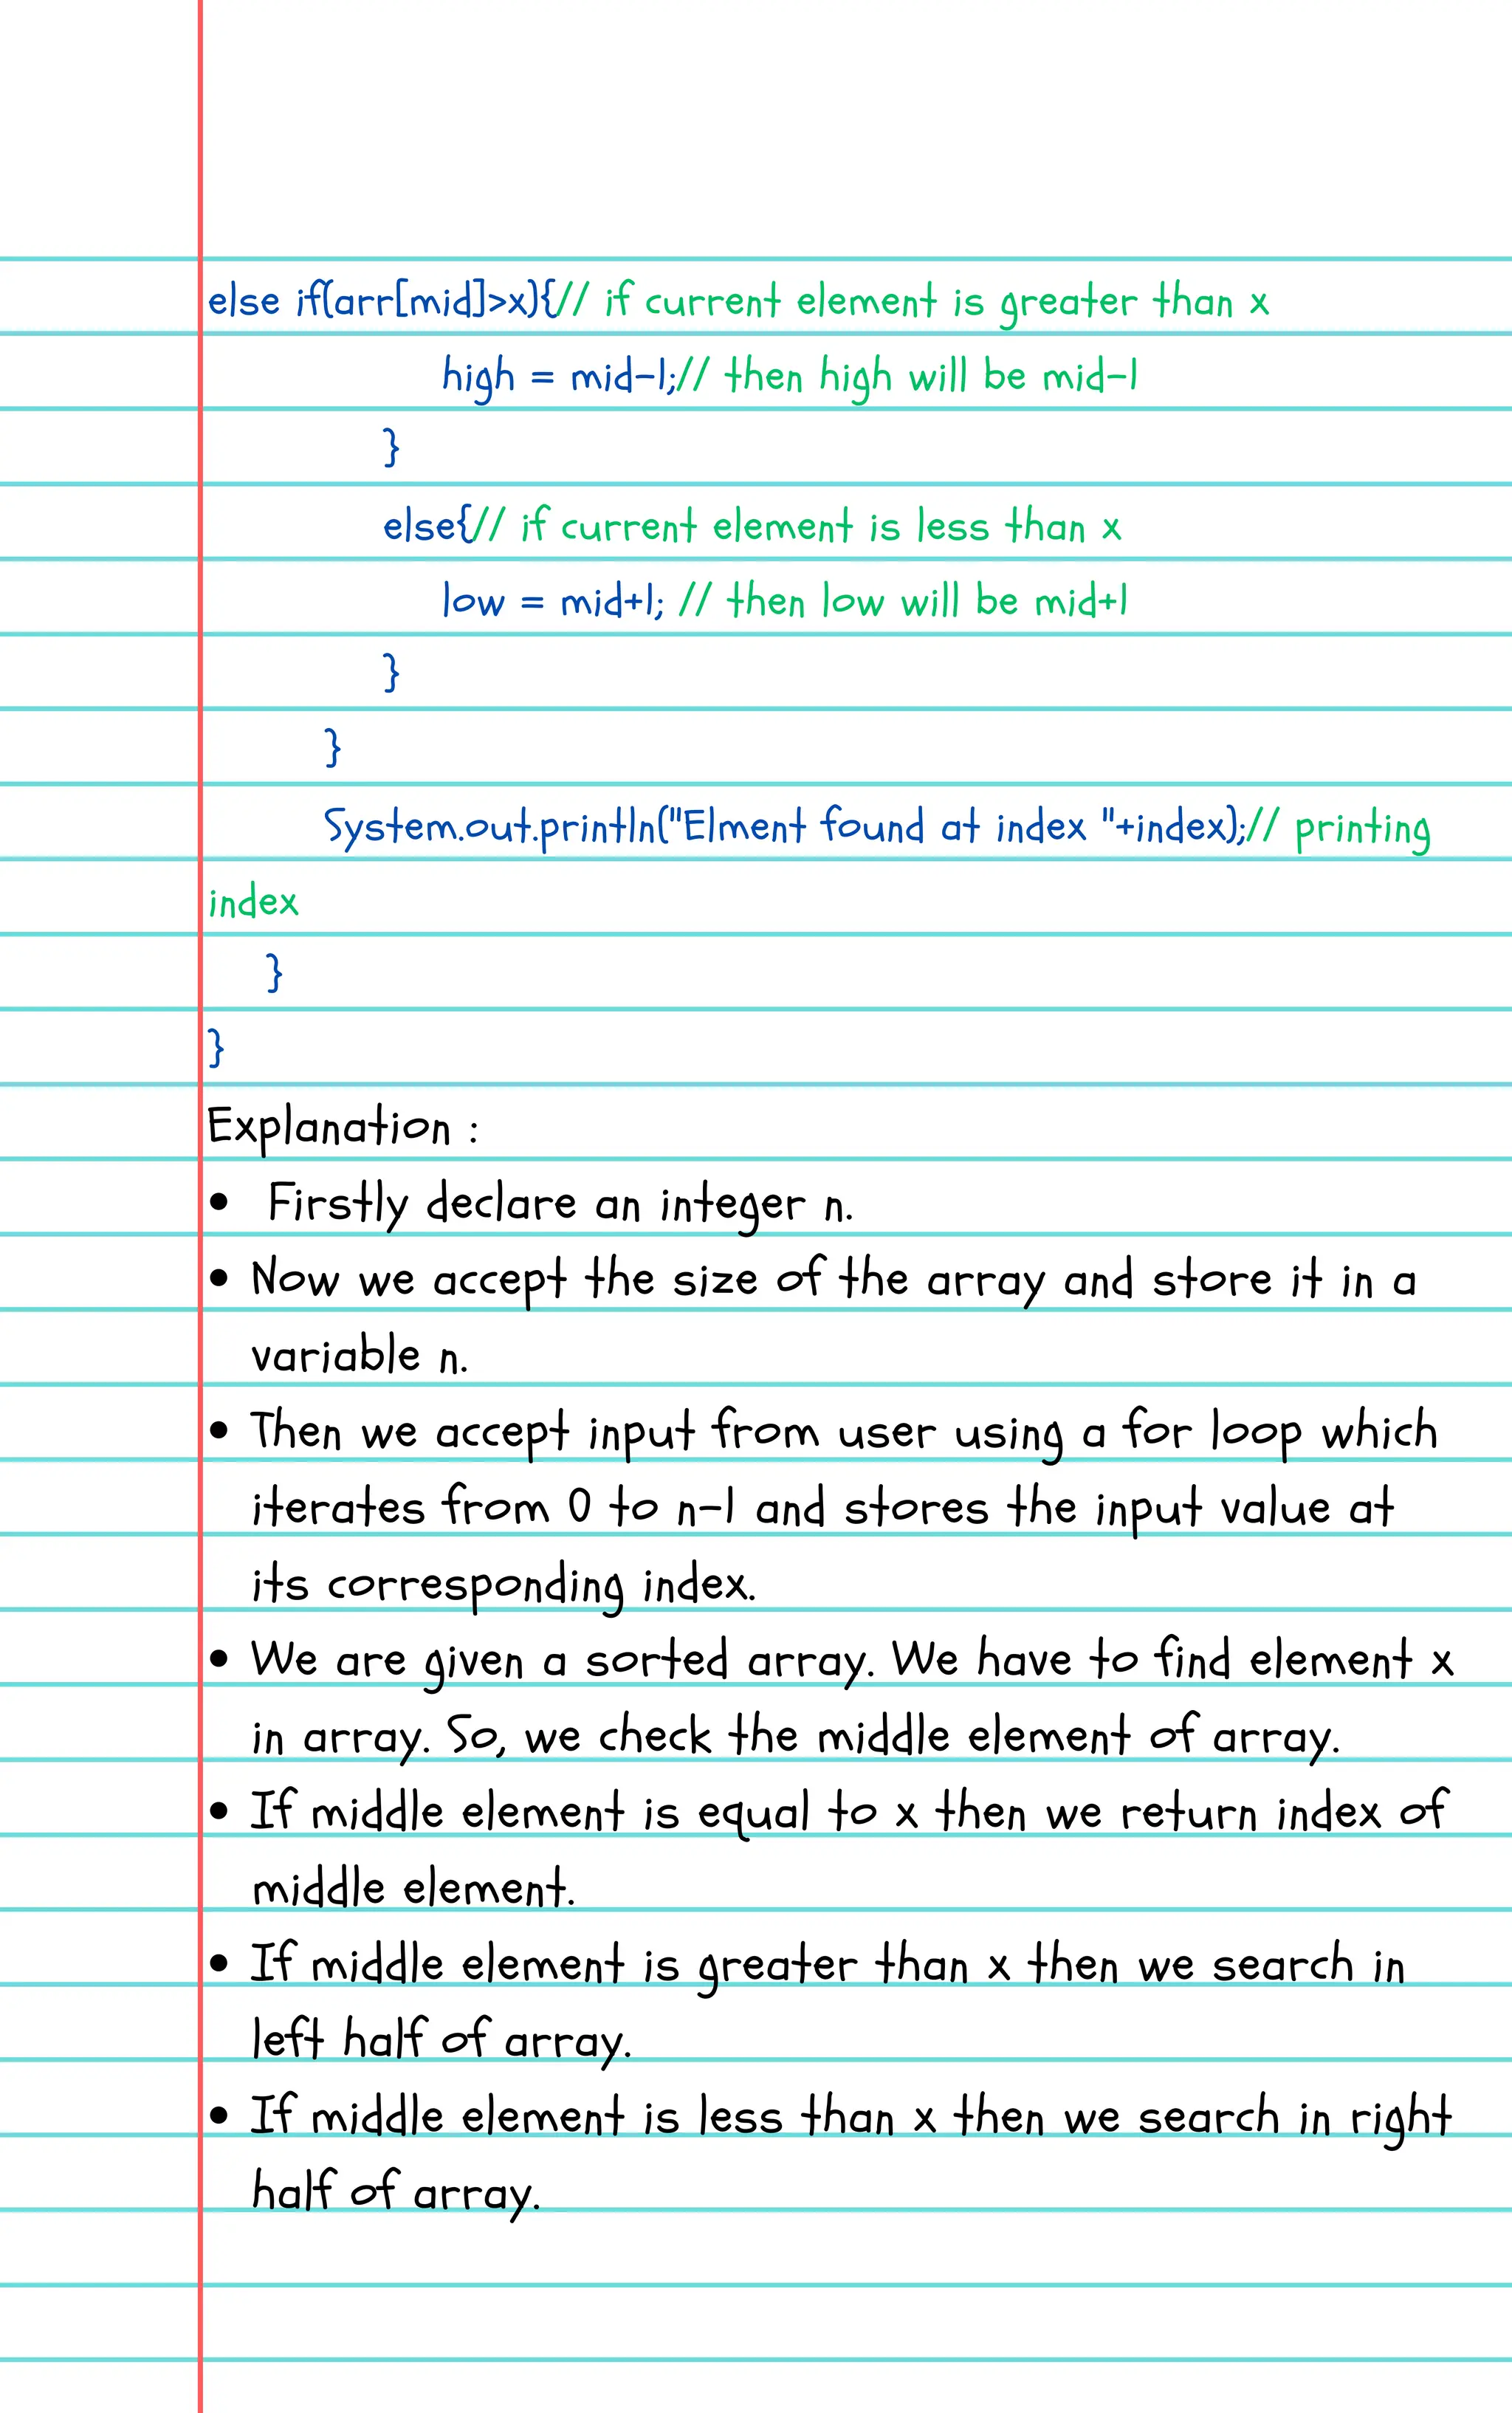 else if(arr[mid]>x){// if current element is greater than x
high = mid-1;// then high will be mid-1
}
else{// if current element is less than x
low = mid+1; // then low will be mid+1
}
}
System.out.println("Elment found at index "+index);// printing
index
}
}
Explanation :
• Firstly declare an integer n.
• Now we accept the size of the array and store it in a
variable n.
• Then we accept input from user using a for loop which
iterates from 0 to n-1 and stores the input value at
its corresponding index.
• We are given a sorted array. We have to find element x
in array. So, we check the middle element of array.
• If middle element is equal to x then we return index of
middle element.
• If middle element is greater than x then we search in
left half of array.
• If middle element is less than x then we search in right
half of array.